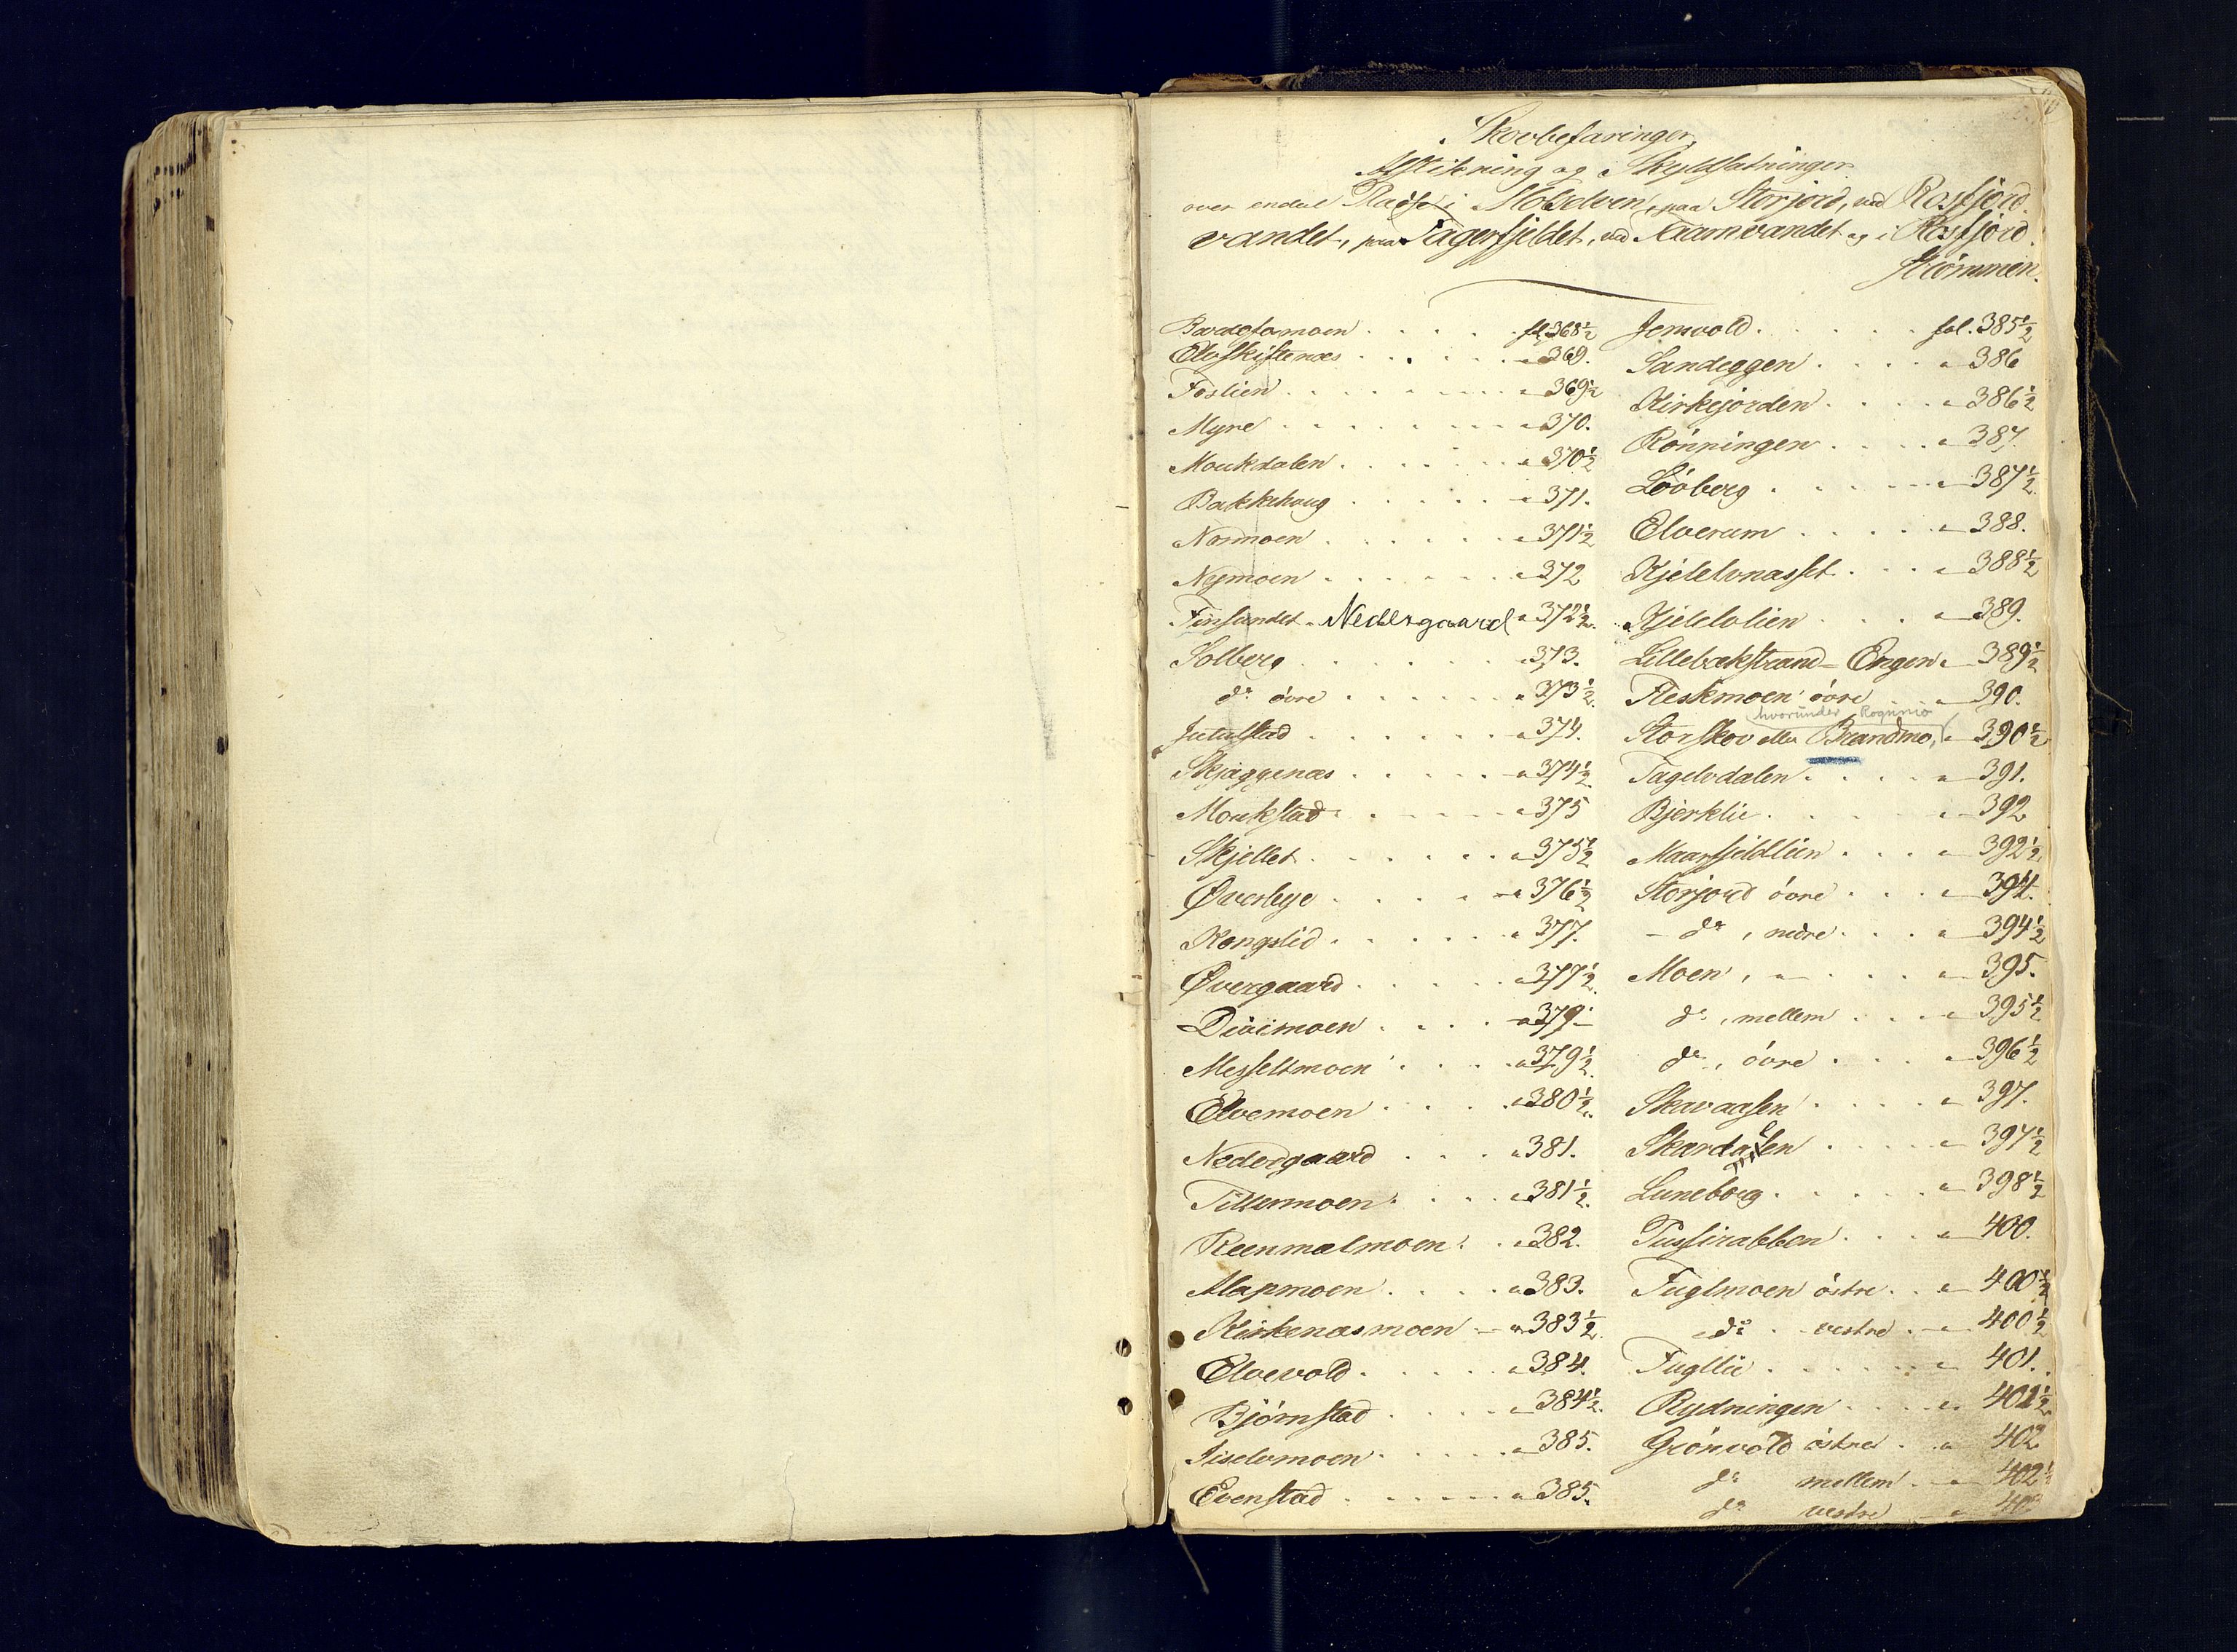 Skovbefaringer,
Afstikning og Skyldsætninger
over endeel Pladse i Molselven, paa Storjord, ved Rosfjord
vandet, paa Tagerfjeldet, ved Taamvandet og i Rosfjord
Strömmen.
fol. 368½
Elvskiftenæs . . . . . " 369.
Foslien . . . . . . . " 369½
Myre . . . . . . . " 370.
Moukdalen . . . . . " 370½
Bakkehoug . . . . . " 371.
Normoen . . . . . . " 371½
Nymoen . . . . . . " 372
Finsundet " Nedergaard " 372½.
Solberg . . . . . . " 373.
do övre . . . . . . " 373½.
Jutulstad . . . . . . " 374.
Skjæggenæs . . . . . " 374½
Moukstad . . . . . " 375
Skjellet . . . . . . " 375½
Øverbye . . . . . " 376½
Kongslid . . . . . . " 377.
Øvergaard . . . . . " 377½
Divimoen . . . . " 379.
Messeltmoen . . . . " 379½
Elvemoen . . . . " 380½.
Nedergaard . . . . " 381.
Tillermoen . . . . " 381½.
Reenmælmoen . . " 382.
Alapmoen . . . . " 383.
Kirkenæsmoen " 383½.
Elvevold . . . . . " 384.
Björnstad . . . . . " 384½.
Iiselvmoen . . . . . " 385.
Evenstad . . . . . " 385.
Jernvold . . . . . . fol. 385½
Sandeggen . . . . " 386
Kirkejorden . . . . " 386½
Rönningen . . . . " 387.
Löoberg . . . . . " 387½.
Elverum . . . . . " 388.
Kjelelvnæsset . . . " 388½
Kjelelvlien . . . . " 389.
Lillebækstrand - Engen " 389½
Fleskmoen övre . . " 390.
hvorunder Rognmo
Storskov eller Brandmo, " 390½
Tagelvdalen . . . . " 391.
Bjerklie . . . . . " 392
Maarfjeldlien . . . " 392½.
Storjord övre . . . " 394.
- do, nedre . . . " 394½
Moen, " . . . " 395.
do, mellem . . . " 395½
do, övre . . . " 396½
Skavaasen . . . . " 397.
Skardalen . . . . " 397½
Luneborg . . . . . " 398½
Tussirabben . . . " 400.
Fuglmoen östre . . " 400½
do . vestre . " 400½
Fugllie . . . . . . " 401.
Rydningen . . . . " 401½
Grönvold östre . . " 402
do mellem . " 402½
do vestre " 403